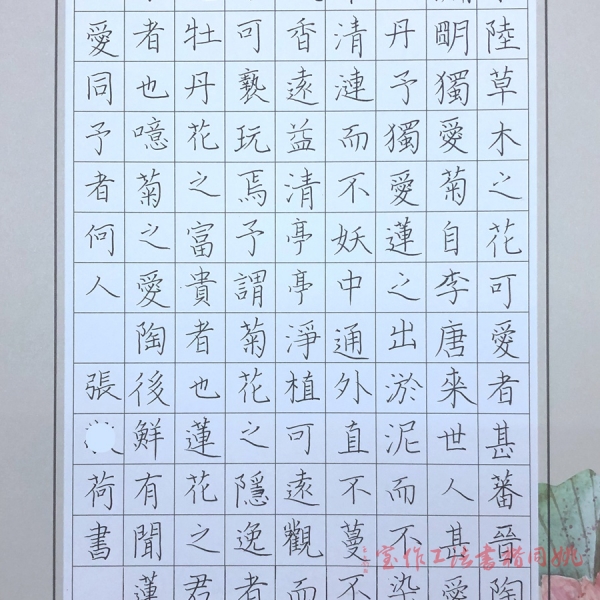 陸草木之花可愛者甚蕃晉陶
明獨愛菊自李唐來世人甚愛
丹予獨愛蓮之出淤泥而不染
清漣而不妖中通外直不蔓不
香遠益清亭亭淨植可遠觀而
可褻玩焉予謂菊花之隱逸者
牡丹花之富貴者也蓮花之君
者也噫菊之愛陶後鮮有聞蓮
愛同予者何人 張 荷書
姚同楷書法工作室